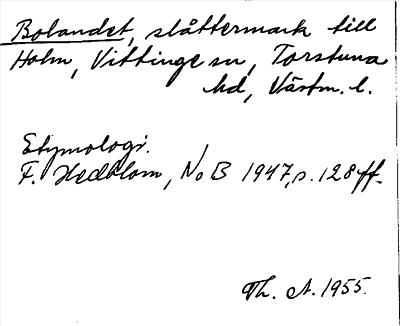 Bolandet, slåttermark till
Holm, Vittinge sn, Torstuna
hd, Västm. l.
Etymologi.
F. Hedblom, NoB 1947, s. 128 ff.
Th. A. 1955.